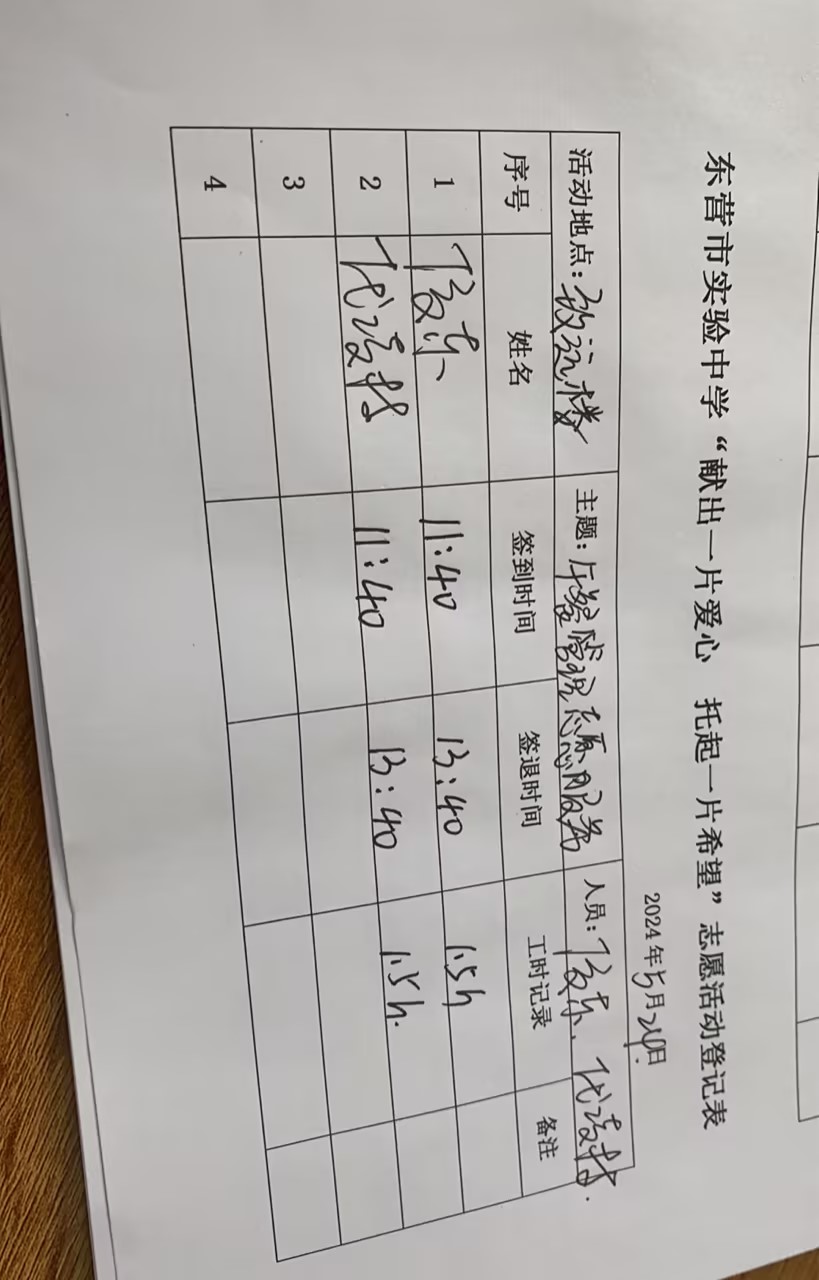 东营市实验中学“献出一片爱心 托起一片希望”志愿活动登记表
2024年5月24日
活动地点：致远楼 主题：午餐 志愿服务 人员：
序号 姓名 签到时间 签退时间 工时记录 备注
1 11:40 13:40 1.5h
2 11:40 13:40 1.5h.
3
4